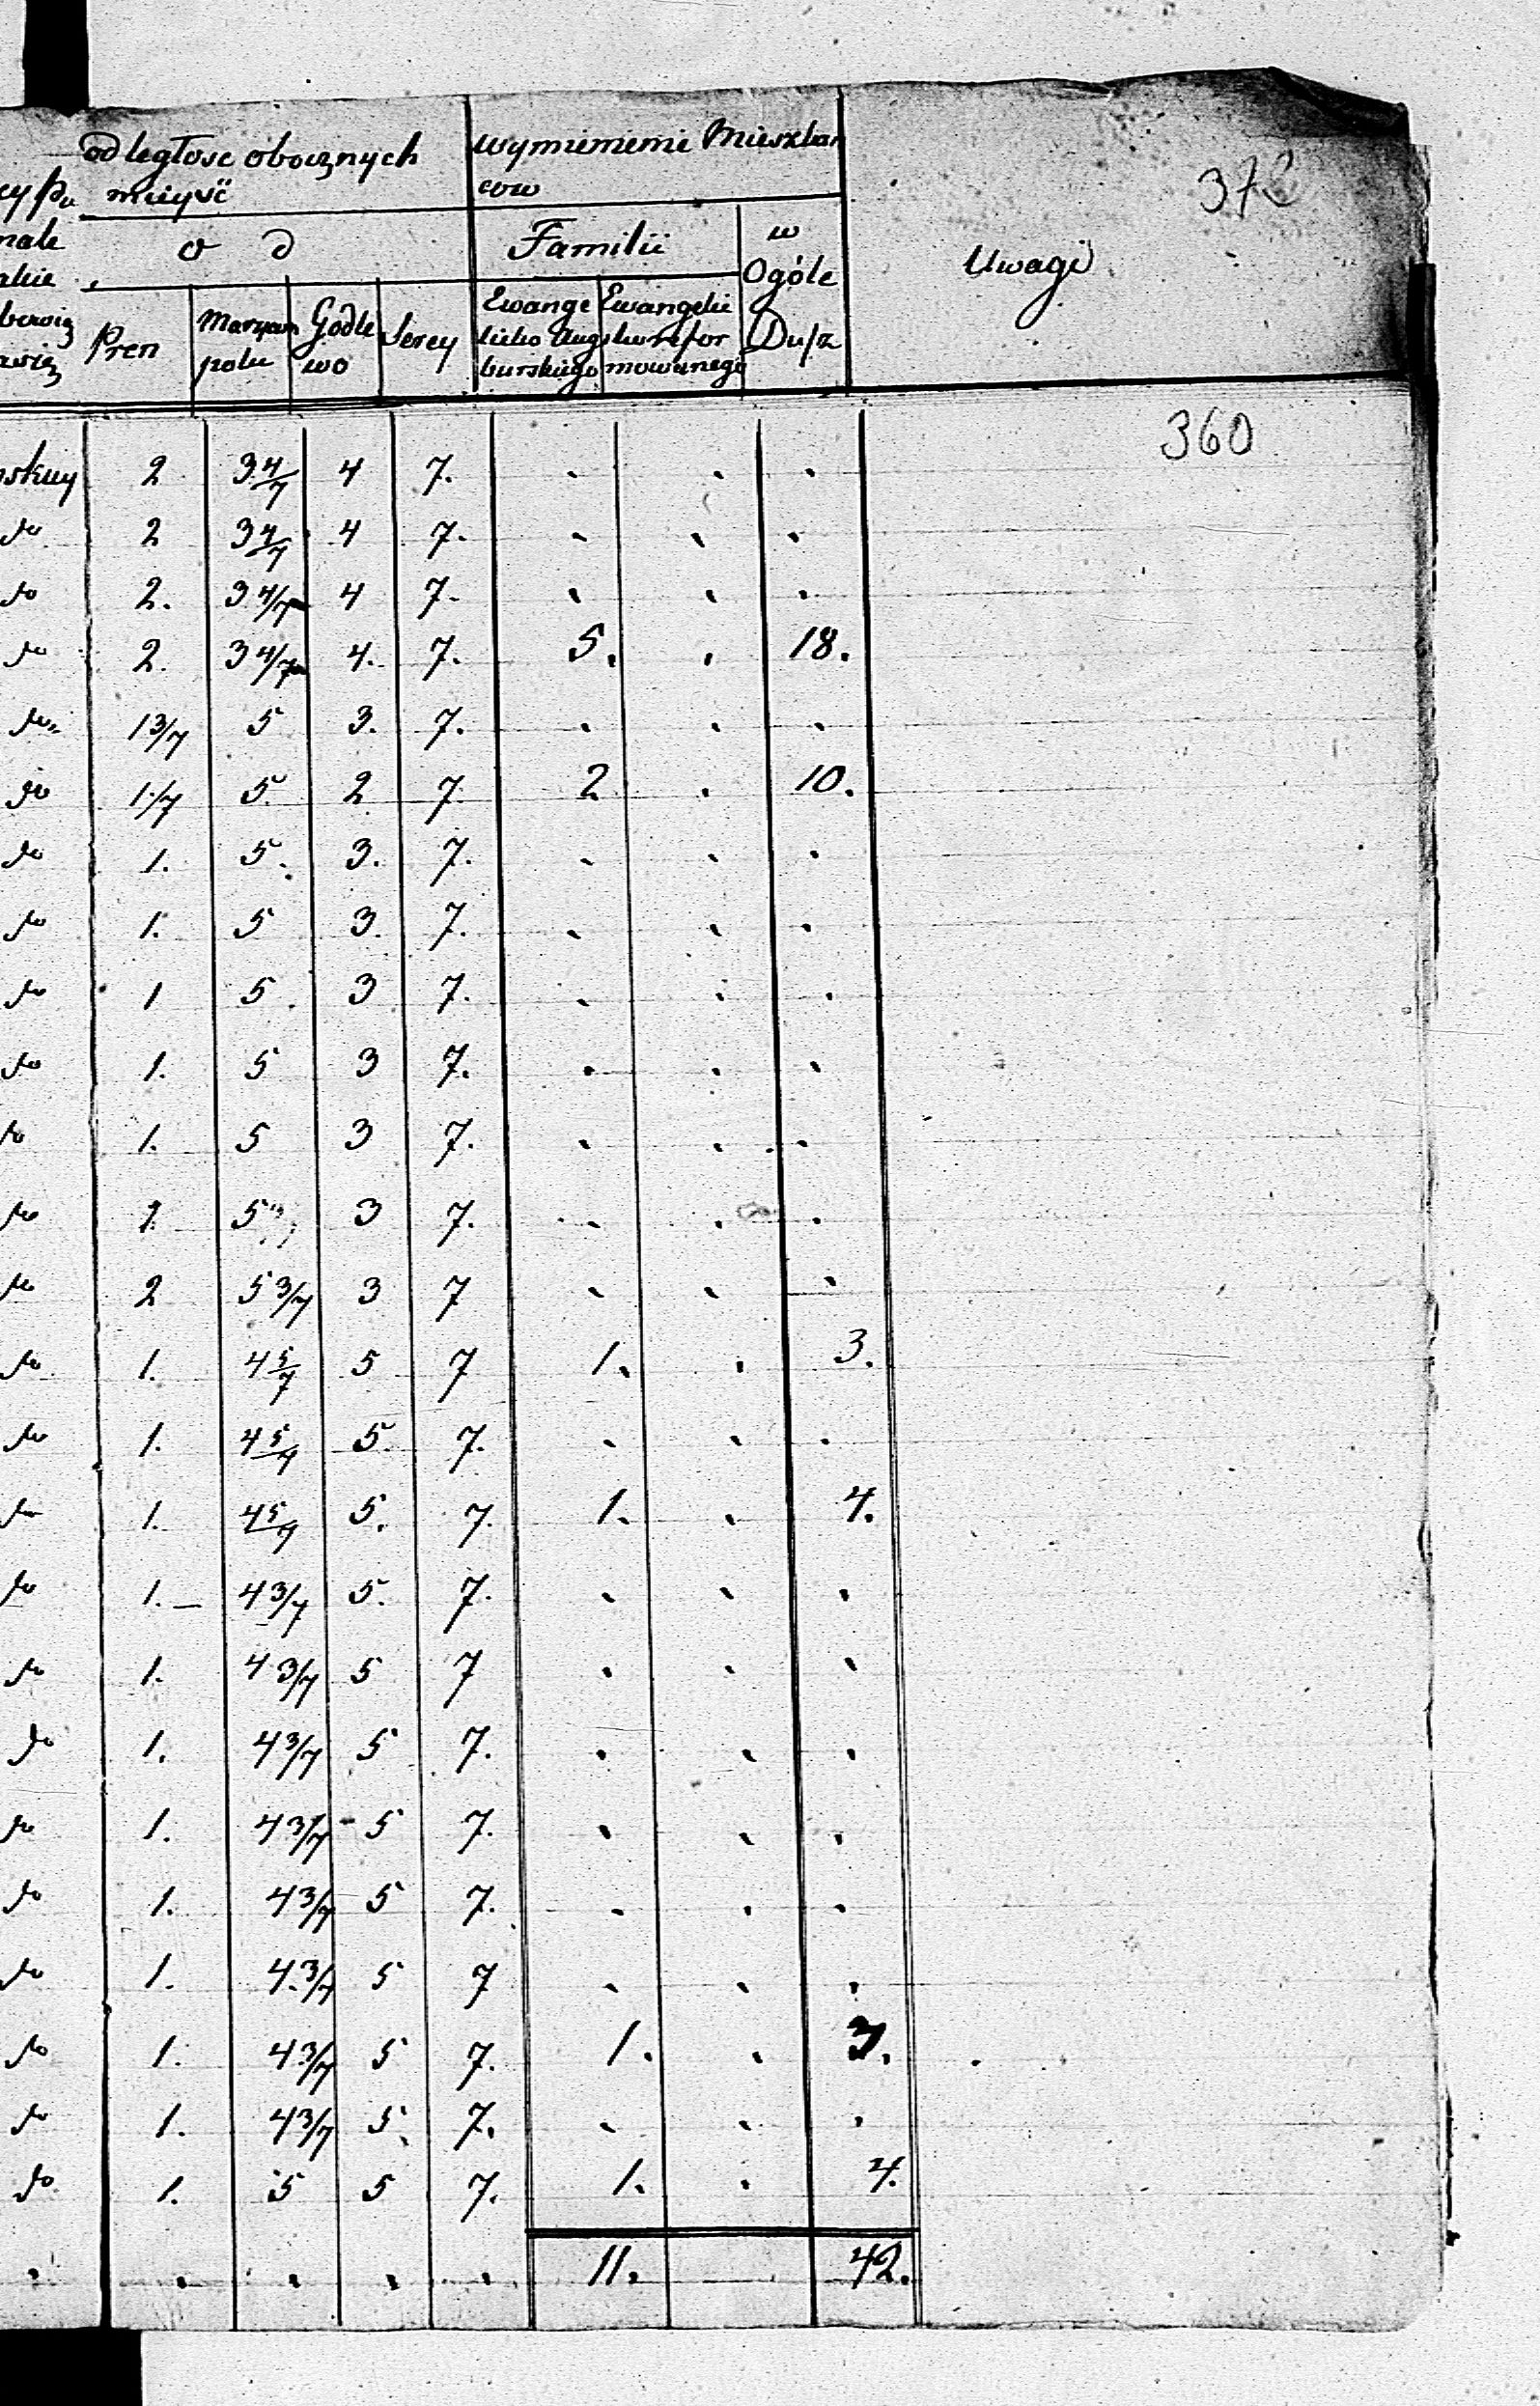 odległosc obocznych wymienienie Mieszkan
mieysć ców 372
o d Familii w
Ogóle Uwagi
Pren Maryam Godle Serey Ewange Ewangelii Dusz
polu wo licko Augs ko refor
burskiego mowanego
360
skiey 2 3 4/7 4 7. . . .
do 2 3 4/7 4 7. . . .
do 2. 3 4/7 4 7. . . .
do 2. 3 4/7 4. 7. 5. . 18.
do 1 3/7 5 3. 7. . . .
do 1 1/7 5. 2 7 2 . 10.
do 1. 5. 3. 7. . . .
do 1. 5 3. 7. . . .
do 1 5. 3 7. . . .
do 1. 5 3 7. . . .
do 1. 5 3 7. . . .
do 1 5 3 7. . . .
do 2 5 3/7 3 7 . . .
do 1. 4 5/7 5 7 1. . 3.
do 1. 4 5/7 5. 7. . . .
do 1. 4 5/7 5. 7. 1. . 4.
do 1. 4 3/7 5. 7. . . .
do 1. 4 3/7 5 7 . . .
do 1. 4 3/7 5 7. . . .
do 1. 4 3/7 5 7. . . .
do 1. 4 3/7 5 7. . . .
do 1. 4 3/7 5 7 . . .
do 1. 4 3/7 5 7. 1. . 3.
do 1. 4 3/7 5. 7. . . .
do 1. 5 5 7. 1. . 4.
. . . . . 11. 42.